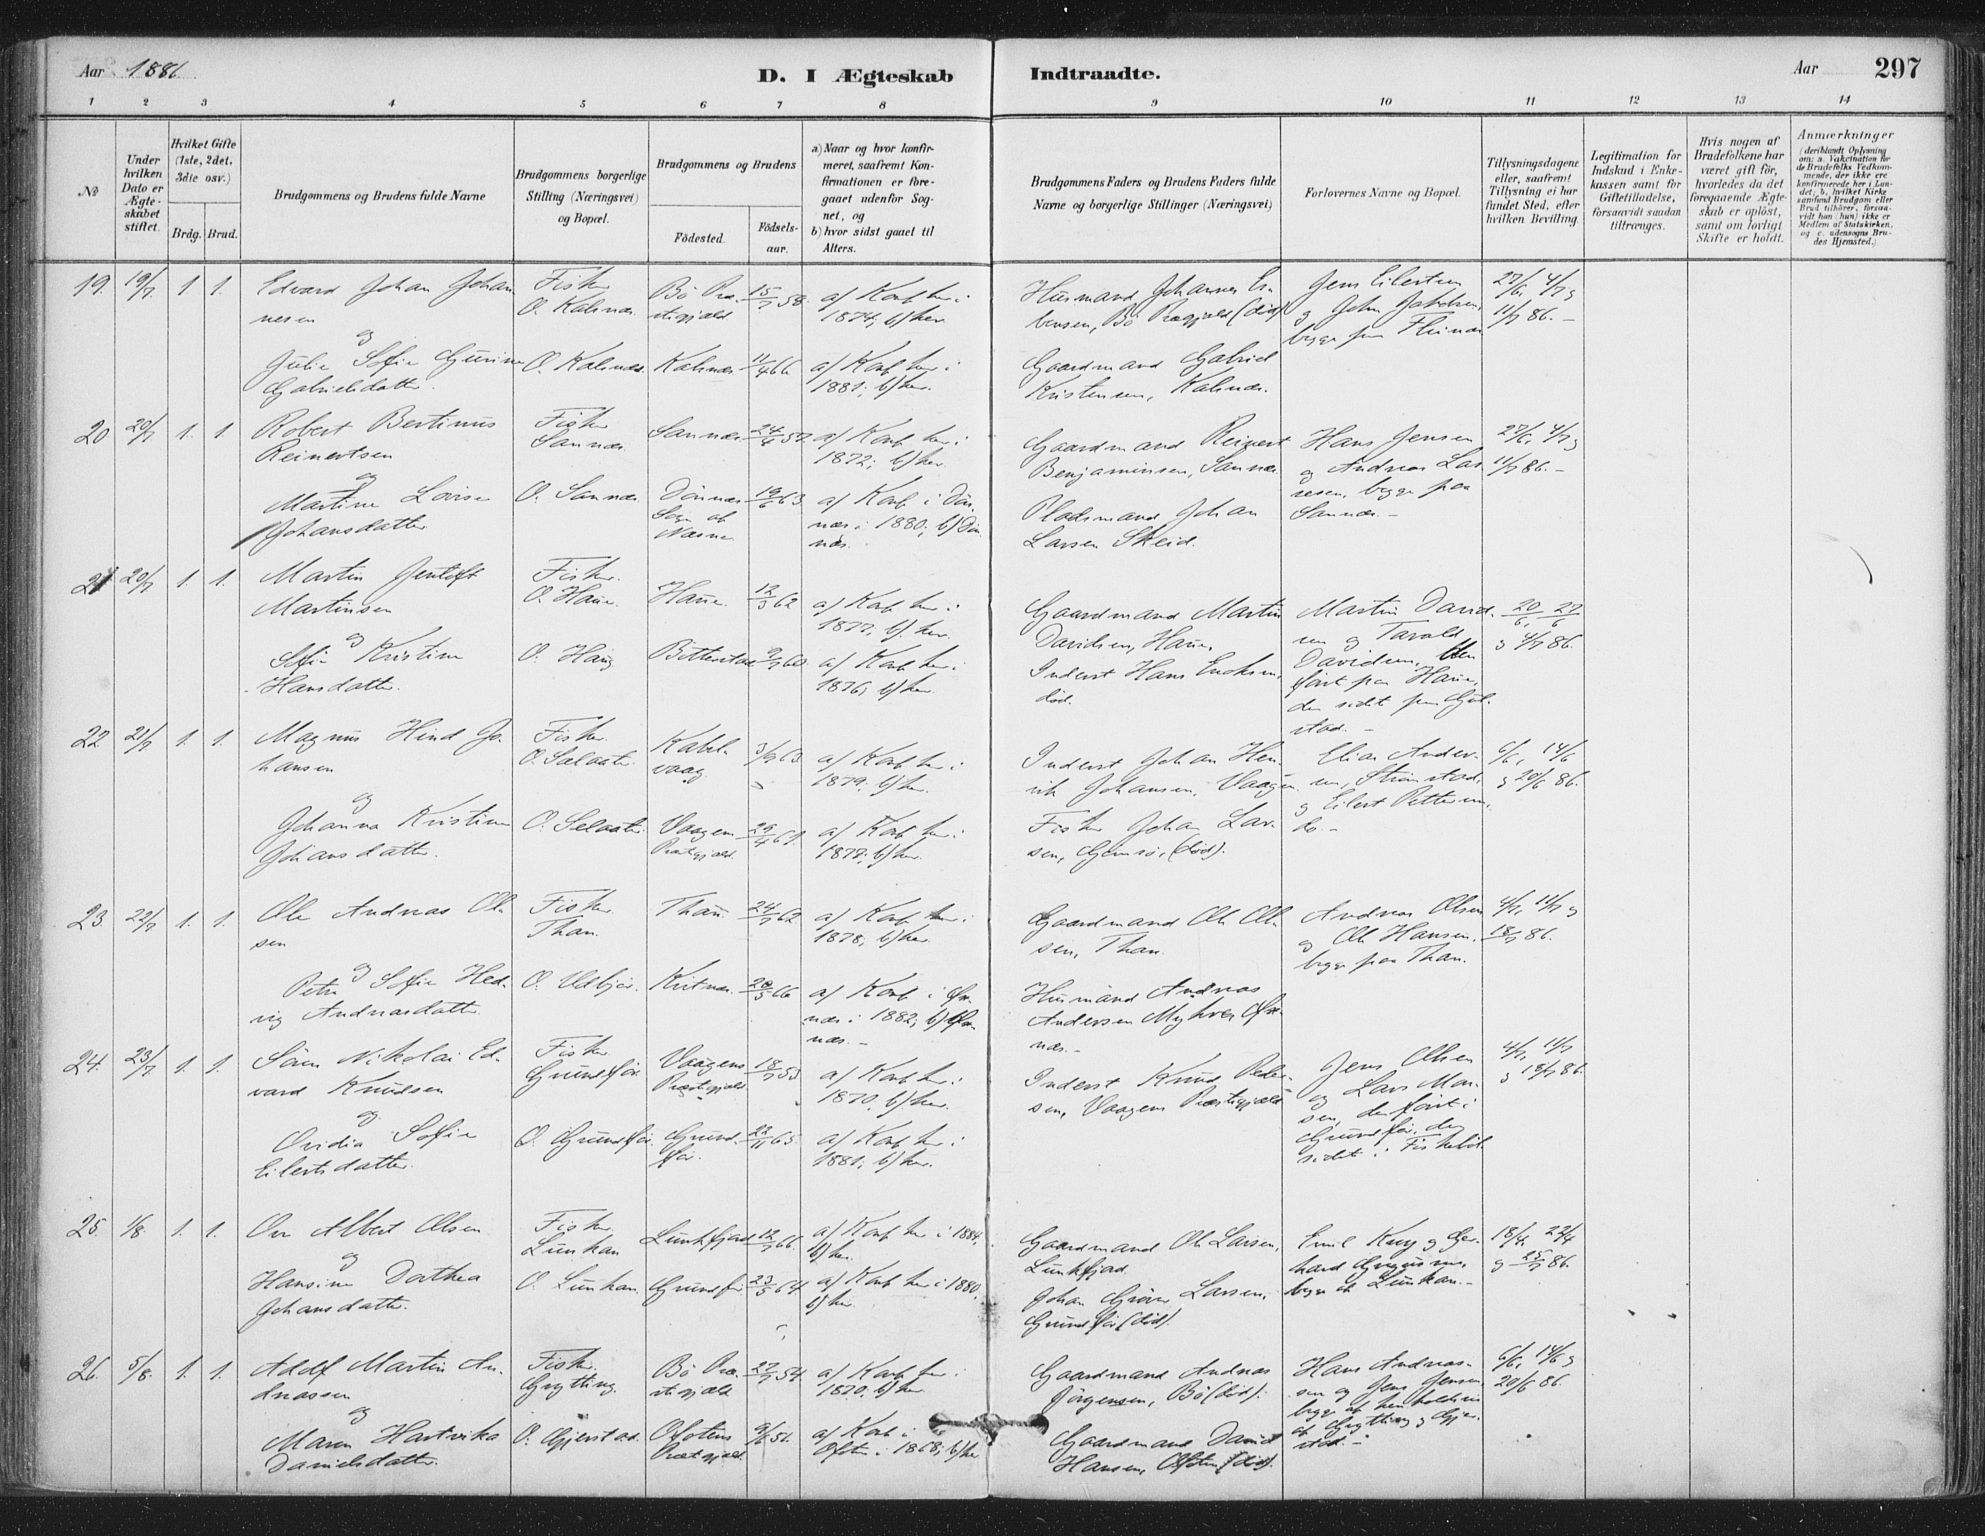 Aar 1886.
D. I Ægteskab
Indtraadte.
Aar
297
1 2 3 4 5 6 7 8 9 10 11 12 13 14
No
Under hvilken Dato er Ægteskabet stiftet.
Hvilket Gifte (1ste, 2det, 3die osv.)
Brdg. Brud.
Brudgommens og Brudens fulde Navne
Brudgommens borgerlige Stilling (Næringsvei) og Bopæl.
Brudgommens og Brudens
Födested.
Födsels-aar.
a) Naar og hvor konfirmeret, saafremt Konfirmationen er foregaaet udenfor Sognet, og
b) hvor sidst gaaet til Alters.
Brudgommens Faders og Brudens Faders fulde Navne og borgerlige Stillinger (Næringsvei)
Forlovernes Navne og Bopæl.
Tillysningsdagene eller, saafremt Tillysning ei har fundet Sted, efter hvilken Bevilling.
Legitimation for Indskud i Enkekassen samt for Giftetilladelse, forsaavidt saadan tiltrænges.
Hvis nogen af Brudefolkene har været gift för, hvorledes da det foregaaende Ægteskab er oplöst, samt om lovligt Skifte er holdt.
Anmærkninger
(deriblandt Oplysning om: a. Vakcination for de Brudefolks Vedkommende, der ikke ere konfirmerede her i Landet; b. hvilket Kirkesamfund Brudgom eller Brud tilhörer, forsaavidt han (hun) ikke er Medlem af Statskirken, og c. udensogns Brudes Hjemsted.)
19. 19/7 1 1. Edvard Johan Johannesen
Fisker
O. Kalsnæs
Bö Præstigjæld 15/7 58. a) Konf her i 1874; b) her
Husmand Johannes Esbensen, Bö Prægjæld (död)
Jens Eilertsen
og John
begge paa Fleinæs
27/6, 4/7 og 11/7 86.-
og
Julie Sofie Gurine
Gabrielsdatter.
O. Kalsnæs Kalsnæs 11/4 66 a) Konf her i 1881; b) her.
Gaardmand Gabriel
Kristensen, Kalsnæs.
20 20/7 1. 1 Robert Bertinus
Reinertsen
Fisker
Sannæs
Sannæs 24/6 57. a) Konf her i 1872; b) her.
Gaardmand Reinert
Benjaminsen, Sannæs
Hans Jensen
og Andreas Larsen, begge paa
Sannæs.-
27/6, 4/7 og 11/7 86.-
og
Martine Lovise
Johansdatter
O. Sannæs Dönnæs Sogn af Næsne 19/6 63 a) Konf i Dönnæs i 1880; b) Dönnæs.
Pladsmand Johan
Larsen Skeid.
21 20/7 1. 1. Martin Jentoft
Martinsen
Fisker.
O. Haue.
Haue. 12/3 62 a) Konf her i 1877, b) her.
Gaardmand Martin
Davidsen, Haue,
Martin Davidsen og Tarald
Davidsen, den
först paa Haue,
den sidst paa
20/6, 27/6 og 4/7 86.
og
Sofie Kristine
Hansdatter.
O. Haug Bitterstad 60. a) Konf her i 1876; b) her
Inderst Hans Enoksen,
död.
22 21/7 1. 1. Magnus Hind Johansen
Fisker.
O. Selaater.
Kabelvaag 3/9 63 a) Konf her i 1879; b) her.
Inderst Johan Henrik Johansen, Vaagen
Elias Andersen,
og Eilert Pettersen,
do.-
6/6, 14/6 og 20/6 86.
og
Johanna Kristine
Johansdatter.
O. Selaater. Vaagen Præstegjæld. 29/4 61. a) Konf her i 1877; b) her.
Fisker Johan Larsen, Gimsö, (död).
23 22/7 1. 1. Ole Andreas Olsen
Fisker.
Than.
Than. 24/7 62 a) Konf her i 1878, b) her.
Gaardmand Ole Olsen, Than.
Andreas Olsen
og Ole Hansen,
begge paa Than.
4/7, 11/7 og 18/7 86.
og
Petra Sofie Hedvig Andreasdatter.
Kvitnæs. 20/5 66 a) Konf i Öxnæs i 1882; b) Öxnæs.-
Husmand Andreas
Andersen Myhre Öxnæs.-
24. 23/7 1. 1. Sören Nikolai Edvard Knudsen
Fisker.
Grundför.
Vaagens Præstegjæld 18/7 53 a) Konf her i 1870, b) her.
Inderst Knud Pedersen, Vaagens Præstegjæld
Jens Olsen
og Lars
den först i
Grundför, den
sidst i Fiskeböl
4/7, 11/7 og 18/7 86.
og
Ovidia Sofie
Eilertsdatter.
O. Grundför. Grundför. 22/11 65 a) Konf her i 1881; b) her.
25. 1/8 1. 1. Ove Albert Olsen
Fisker.
Lunkan
Lunkfjord 12/7 66. a) Konf her i 1884, b) her.
Gaardmand Ole Larsen,
Lunkfjord.
Emil og Gerhard
begge af Lunkan.-
18/4, 22/4 og 25/7 86.
og
Hansine Dorthea
Johansdatter.
O. Lunkan. Grundför 23/5 64 a) Konf her i 1880, b) her
Johan Gröver Larsen,
Grundför (död).
26. 5/8. 1. 1. Adolf Martin Andreassen
Fisker.
Grytting.
Bö Præstegjæld 27/7 54 a) Konf her i 1870, b) her
Gaardmand Andreas
Jörgensen, Bö (död).
Hans Andreassen og Jens Jensen
begge af henholdsvis
af Grytting og Gjerstad.-
6/6, 14/6 og 20/6 86.
og
Maren Hartvika
Danielsdatter.
O. Gjerstad. Ofotens Præstegjæld 9/6 51. a) Konf i Ofoten i 1868; b) her
Gaardmand Daniel
Hansen, Ofoten (död).